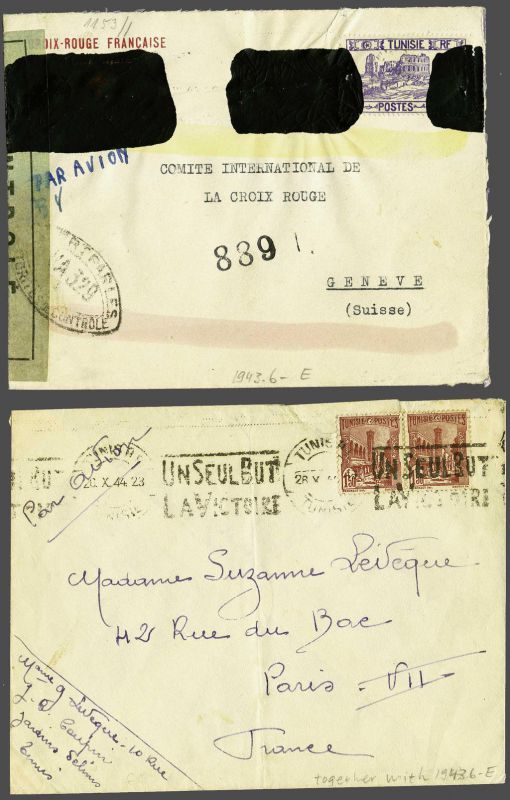 1153/1
CROIX-ROUGE FRANÇAISE
TUNISIE RF
POSTES
PAR AVION
COMITE INTERNATIONAL DE
LA CROIX ROUGE
8891.
GENEVE
(Suisse)
CONTRÔLE
1943.6- E
TUNISIE POSTES
TUNISIE POSTES
TUNIS
26 X. 44. 23
UN SEUL BUT
LA VICTOIRE
TUNIS
28 X.
UN SEUL BUT
LA VICTOIRE
Par avion
Madame Suzanne Levêque
42 Rue du Bac
Paris VII
France
Mme Levêque. 10 Rue
Tunis
together with 1943.6-E